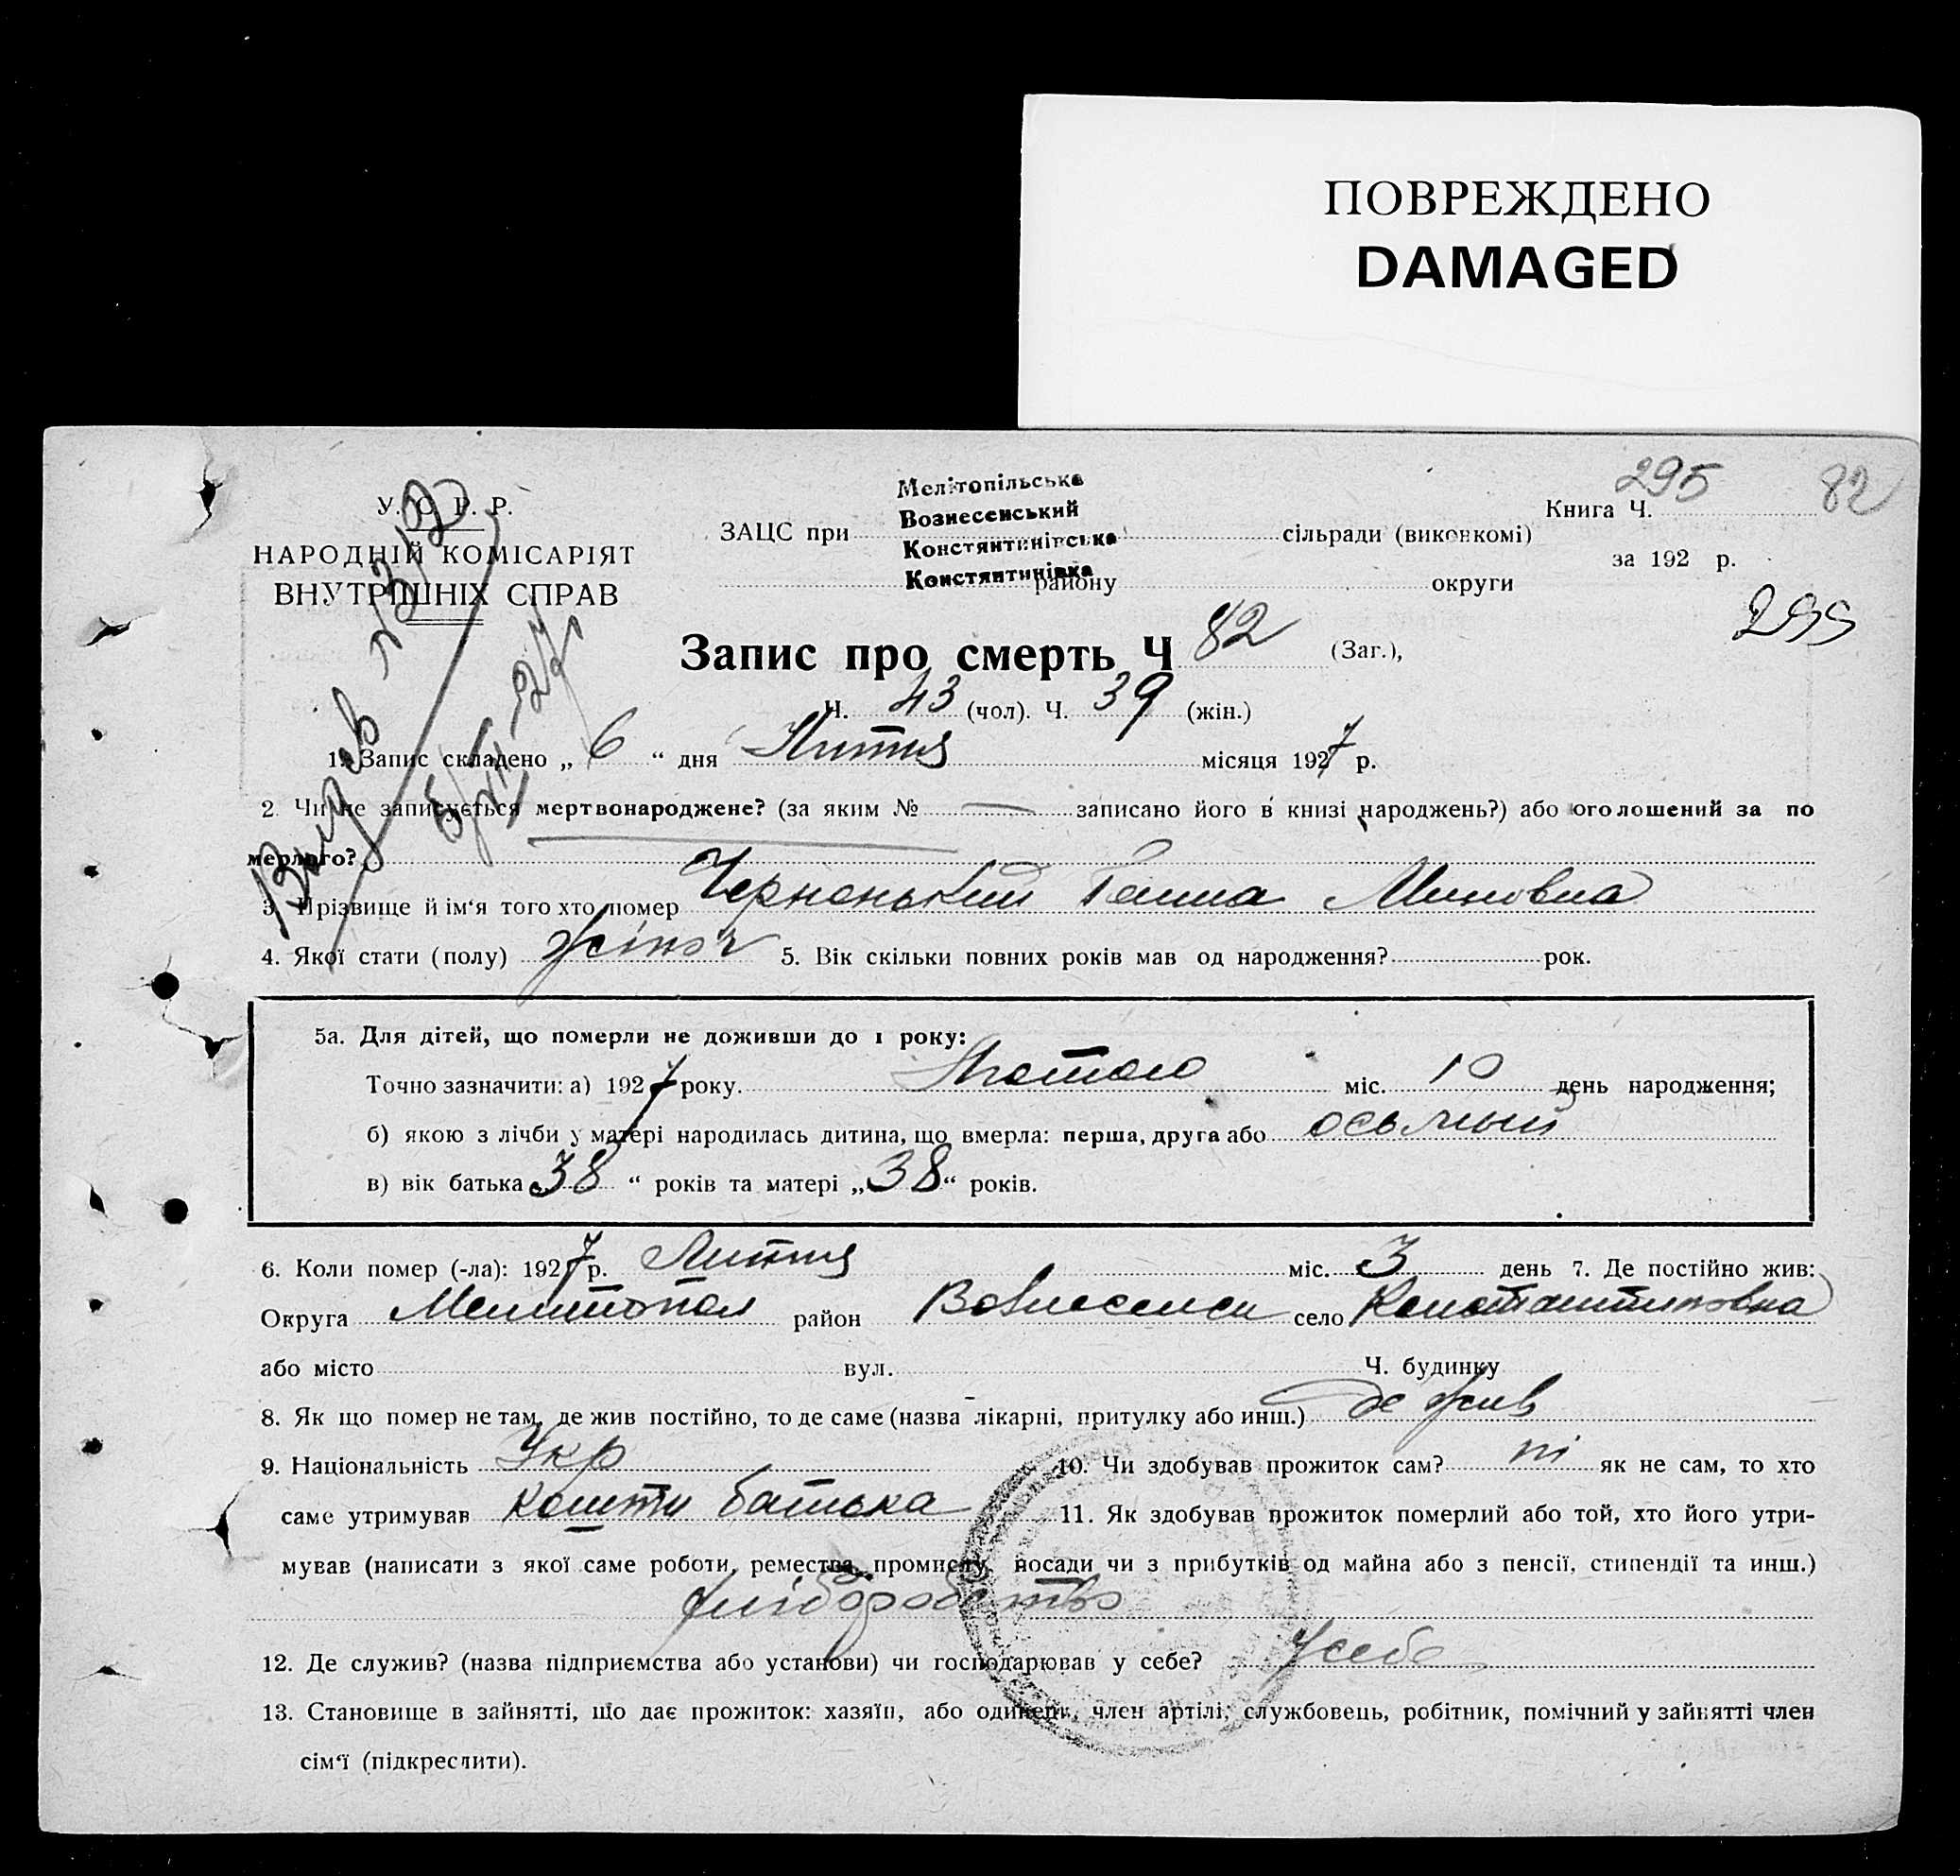 ПОВРЕЖДЕНО
DAMAGED
295 82
У. С. Р. Р.
НАРОДНІЙ КОМІСАРІЯТ
ВНУТРІШНІХ СПРАВ
Мелітопільська
Вознесенський
Констянтинівська
Констянтинівка
ЗАЦС при сільради (виконкомі)
району округи
Книга Ч.
за 192 р.
299
Запис про смерть Ч 82 (Заг.),
Ч. 43 (чол). Ч. 39 (жін.)
1. Запис складено „ 6 “ дня Липня місяця 1927 р.
2. Чи не записується мертвонароджене? (за яким № — записано його в книзі народжень?) або оголошений за по
мерлого?
3. Прізвище й ім‘я того хто помер Черненький Ганна Миновна
4. Якої стати (полу) жіноч 5. Вік скільки повних років мав од народження? рок.
5а. Для дітей, що померли не доживши до 1 року:
Точно зазначити: а) 1927 року. Лютого міс. 10 день народження;
б) якою з лічби у матері народилась дитина, що вмерла: перша, друга або осьмый
в) вік батька 38 “ років та матері „38“ років.
6. Коли помер (-ла): 1927 р. Липня міс. 3 день 7. Де постійно жив:
Округа Мелитопол район Вознесенси село Константиновка
або місто вул. Ч. будинку
8. Як що помер не там, де жив постійно, то де саме (назва лікарні, притулку або инш.) де жив
9. Національність Укр 10. Чи здобував прожиток сам? ні як не сам, то хто
саме утримував кошти батька 11. Як здобував прожиток померлий або той, хто його утри-
мував (написати з якої саме роботи, ремества, промислу, посади чи з прибутків од майна або з пенсії, стипендії та инш.)
хліборобство
12. Де служив? (назва підприємства або установи) чи господарював у себе? У себе
13. Становище в зайнятті, що дає прожиток: хазяїн, або одинець, член артілі, службовець, робітник, помічний у зайнятті член
сім‘ї (підкреслити).